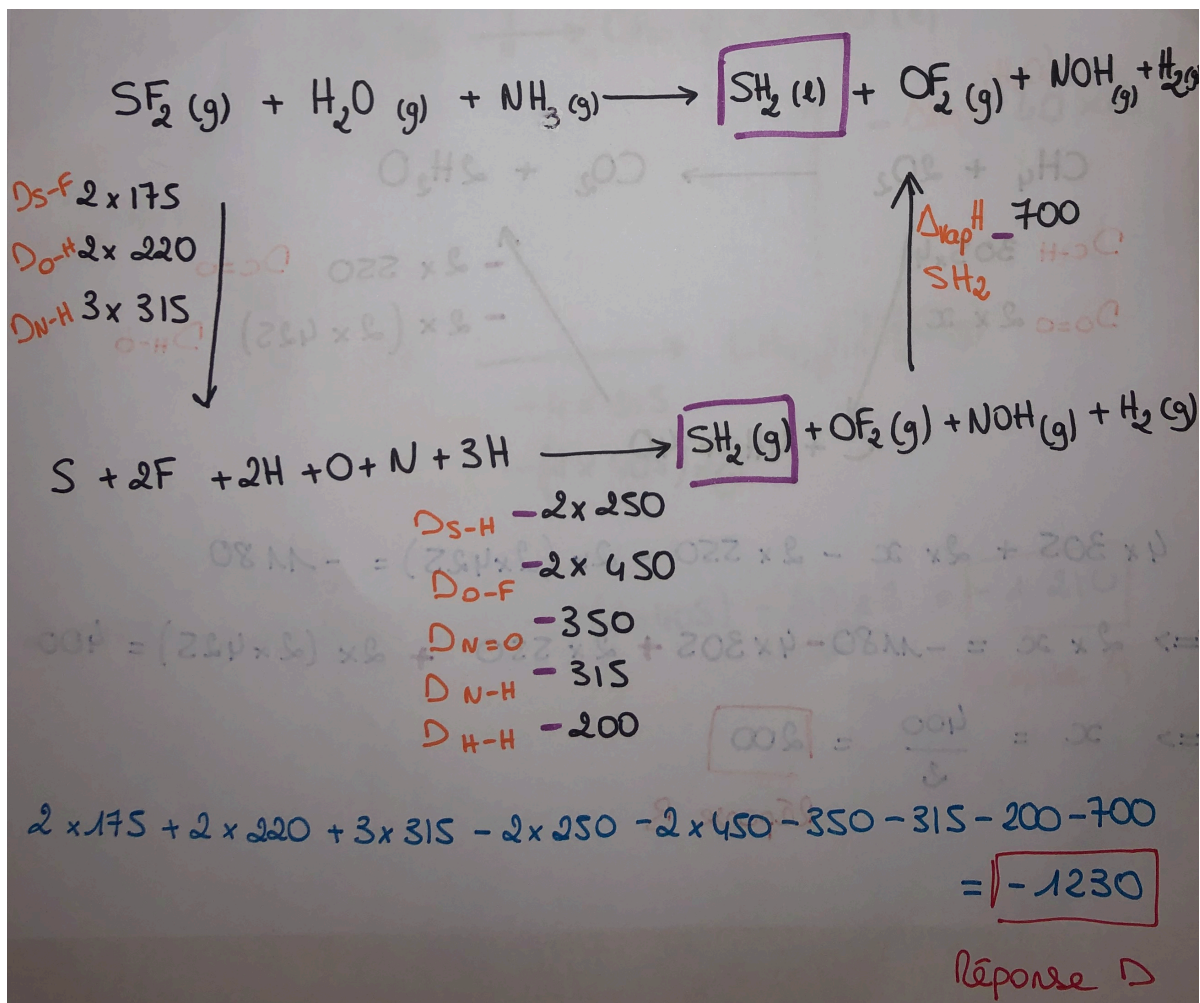 SF₂ (g) + H₂O (g) + NH₃ (g) ⟶ SH₂ (l) + OF₂ (g) + NOH (g) + H₂(g)
D_S-F 2 x 175
D_O-H 2 x 220
D_N-H 3 x 315
Δvap H - 700
SH₂
S + 2F + 2H + O + N + 3H ⟶ SH₂ (g) + OF₂ (g) + NOH (g) + H₂ (g)
D_S-H - 2 x 250
D_O-F - 2 x 450
D_N=O - 350
D_N-H - 315
D_H-H - 200
2 x 175 + 2 x 220 + 3 x 315 - 2 x 250 - 2 x 450 - 350 - 315 - 200 - 700
= - 1230
Réponse D